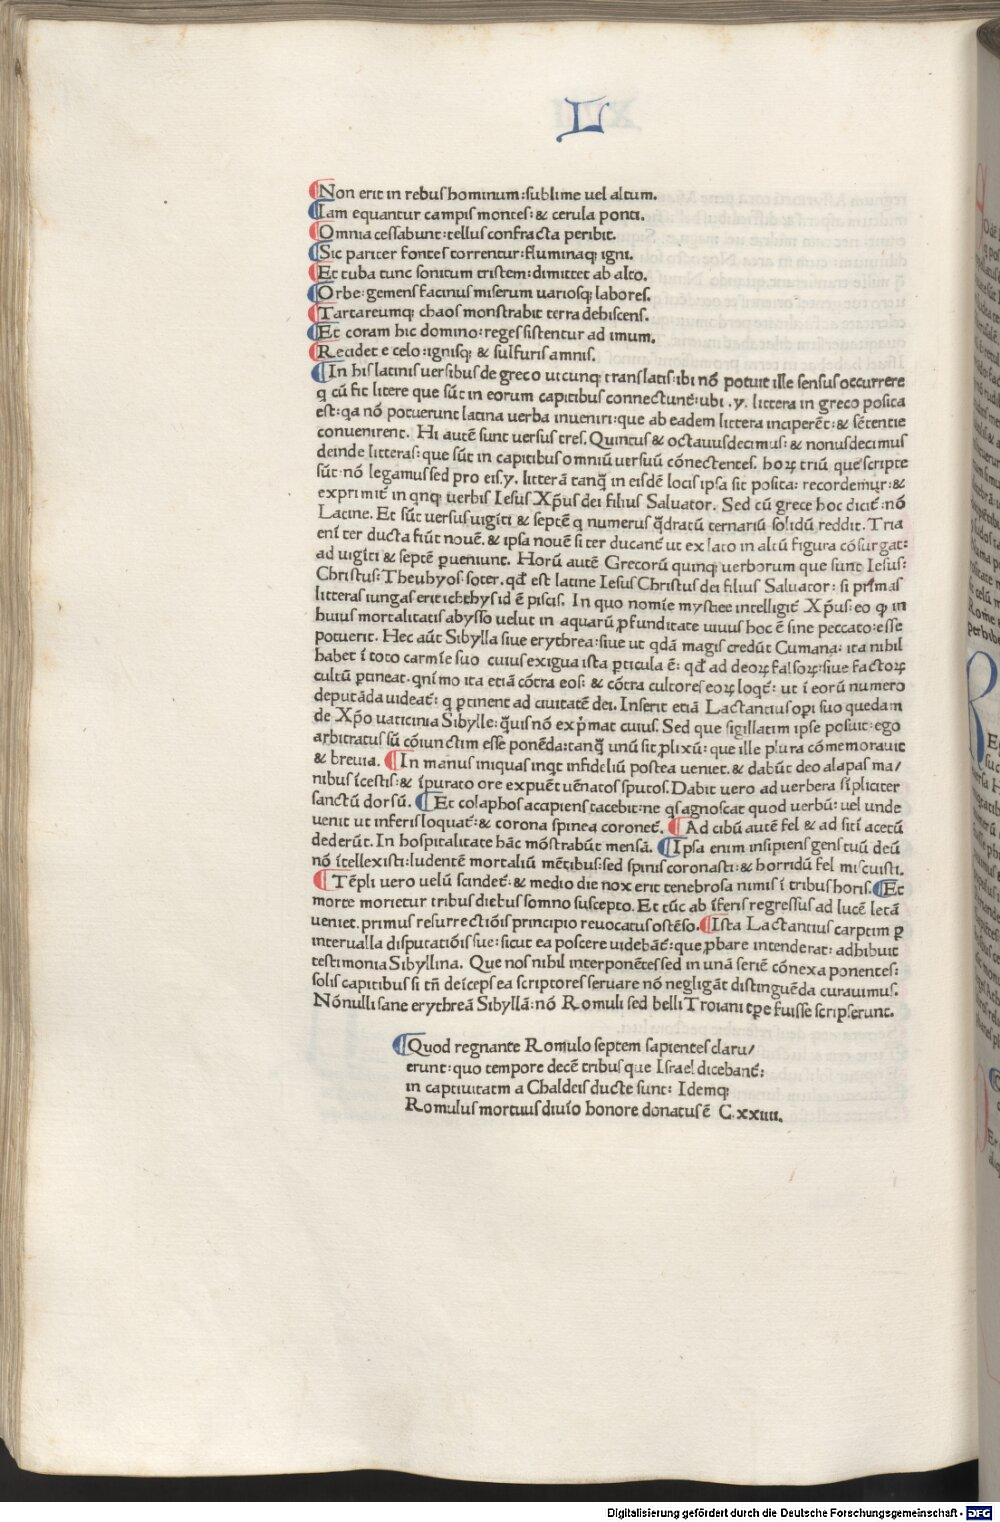 L
¶Non erit in rebus hominum: sublime uel altum.
¶Iam equantur campis montes: & cerula ponti.
¶Omnia cessabunt: tellus confracta peribit.
¶Sic pariter fontes torrentur: fluminaq; igni.
¶Et tuba tunc sonitum tristem: dimittet ab alto.
¶Orbe: gemens facinus miserum uariosq; labores.
¶Tartareumq; chaos monstrabit terra dehiscens.
¶Et coram hic domino: reges sistentur ad imum.
¶Recidet e celo: ignisq; & sulfuris amnis.
¶In his latinis uersibus de greco utcunq; translatis: ibi nõ potuit ille sensus occurrere
q cũ fit litere que sũt in eorum capitibus connectunt̃: ubi .y. littera in greco posita
est: qa nõ potuerunt latina uerba inueniri: que ab eadem littera inciperẽt: & sẽtentie
conuenirent. Hi autẽ sunt uersus tres. Quintus & octauusdecimus: & nonusdecimus
deinde litteras: que sũt in capitibus omniũ uersuũ cõnectentes. hoꝝ triũ que scripte
sũt: nõ legamus sed pro eis .y. litterã tanq̃ in eisdẽ locis ipsa sit posita: recordemur: &
exprimit̃ in qnq; uerbis Iesus Xp̃us dei filius Saluator. Sed cũ grece hoc dicit̃: nõ
Latine. Et sũt uersus uigĩti & septẽ q numerus q̃dratũ ternariũ solidũ reddit. Tria
enĩ ter ducta fiũt nouẽ. & ipsa nouẽ si ter ducant̃ ut ex lato in altũ figura cõsurgat:
ad uigĩti & septẽ ꝑueniunt. Horũ autẽ Grecorũ quinq; uerborum que sunt Iesus:
Christus: Theuhyos soter. qd̃ est latine Iesus Christus dei filius Saluator: si primas
litteras iungas erit ichthys id ẽ piscis. In quo nomĩe mystice intelligit̃ Xp̃us: eo ꝙ in
huius mortalitatis abysso uelut in aquarũ ꝓfunditate uiuus hoc ẽ sine peccato: esse
potuerit. Hec aũt Sibylla siue erythrea: siue ut qdã magis credũt Cumana: ita nihil
habet ĩ toto carmĩe suo cuius exigua ista ꝑticula ẽ: qd̃ ad deoꝝ falsoꝝ: siue factoꝝ
cultũ ꝑtineat. qnĩmo ita etiã cõtra eos: & cõtra cultores eoꝝ loqt̃: ut ĩ eorũ numero
deputãda uideat̃: q ꝑtinent ad ciuitatẽ dei. Inserit etiã Lactantius oꝑi suo quedam
de Xp̃o uaticinia Sibylle: q̃uis nõ exp̃mat cuius. Sed que sigillatim ipse posuit: ego
arbitratus sũ cõiunctim esse ponẽda: tanq̃ unũ sit ꝓlixũ: que ille plura cõmemorauit
& breuia. ¶In manus iniquas inqt infideliũ postea ueniet. & dabũt deo alapas ma/
nibus ĩcestis: & ĩpurato ore expuẽt uẽnatos sputos. Dabit uero ad uerbera sĩpliciter
sanctũ dorsũ. ¶Et colaphos accipiens tacebit: ne qs agnoscat quod uerbũ: uel unde
uenit ut inferis loquat̃: & corona spinea coronet̃. ¶Ad cibũ autẽ fel & ad sitĩ acetũ
dederũt. In hospitalitate hãc mõstrabũt mensã. ¶Ipsa enim insipiens gens tuũ deũ
nõ ĩtellexisti: ludentẽ mortaliũ mẽtibus: sed spinis coronasti: & horridũ fel miscuisti.
¶Tẽpli uero uelũ scindet̃: & medio die nox erit tenebrosa nimis ĩ tribus horis. ¶Et
morte morietur tribus diebus somno suscepto. Et tũc ab ĩferis regressus ad lucẽ letã
ueniet. primus resurrectiõis principio reuocatus ostẽso. ¶Ista Lactantius carptim ꝑ
interualla disputatiõis sue: sicut ea poscere uidebãt̃: que ꝓbare intenderat: adhibuit
testimonia Sibyllina. Que nos nihil interponẽtes sed in unã seriẽ cõnexa ponentes:
solis capitibus si tñ deĩceps ea scriptores seruare nõ negligãt distinguẽda curauimus.
Nõnulli sane erythreã Sibyllã: nõ Romuli sed belli Troiani tꝑe fuisse scripserunt.
¶Quod regnante Romulo septem sapientes claru/
erunt: quo tempore decẽ tribus que Israel dicebant̃:
in captiuitatm a Chaldeis ducte sunt: Idemq;
Romulus mortuus diuĩo honore donatus ẽ C.xxiiii.
Digitalisierung gefördert durch die Deutsche Forschungsgemeinschaft - DFG